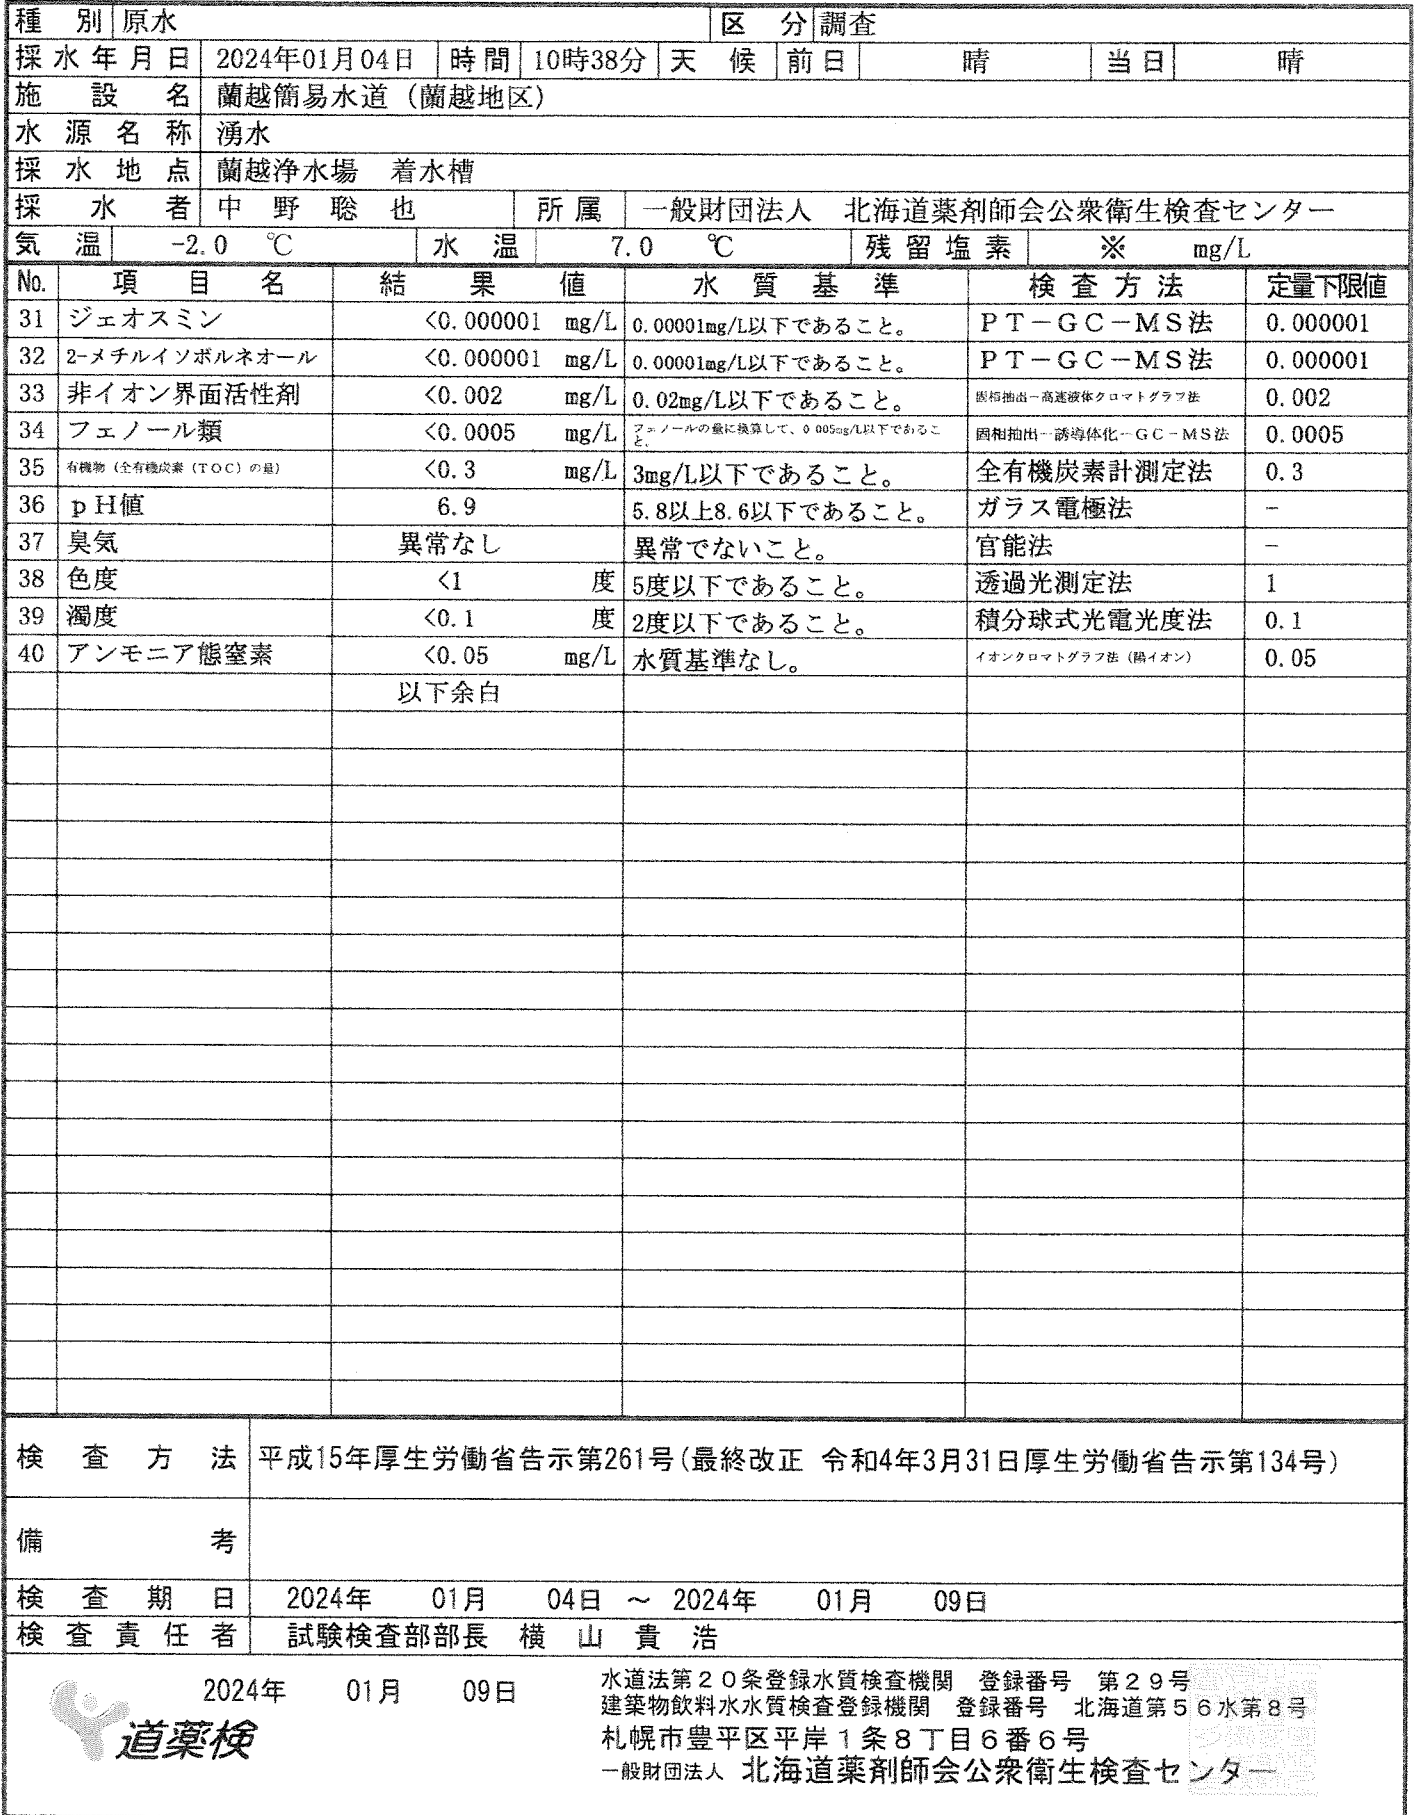 種別 原水 区分 調査
採水年月日 2024年01月04日 時間 10時38分 天候 前日 晴 当日 晴
施設名 蘭越簡易水道（蘭越地区）
水源名称 湧水
採水地点 蘭越浄水場 着水槽
採水者 中野 聡也 所属 一般財団法人 北海道薬剤師会公衆衛生検査センター
気温 -2.0 ℃ 水温 7.0 ℃ 残留塩素 ※ mg/L
No. 項目名 結果値 水質基準 検査方法 定量下限値
31 ジェオスミン <0.000001 mg/L 0.00001mg/L以下であること。 PT－GC－MS法 0.000001
32 2-メチルイソボルネオール <0.000001 mg/L 0.00001mg/L以下であること。 PT－GC－MS法 0.000001
33 非イオン界面活性剤 <0.002 mg/L 0.02mg/L以下であること。 固相抽出－高速液体クロマトグラフ法 0.002
34 フェノール類 <0.0005 mg/L フェノールの量に換算して、0.005mg/L以下であること。 固相抽出－誘導体化－GC－MS法 0.0005
35 有機物（全有機炭素（TOC）の量） <0.3 mg/L 3mg/L以下であること。 全有機炭素計測定法 0.3
36 pH値 6.9 5.8以上8.6以下であること。 ガラス電極法 －
37 臭気 異常なし 異常でないこと。 官能法 －
38 色度 <1 度 5度以下であること。 透過光測定法 1
39 濁度 <0.1 度 2度以下であること。 積分球式光電光度法 0.1
40 アンモニア態窒素 <0.05 mg/L 水質基準なし。 イオンクロマトグラフ法（陽イオン） 0.05
以下余白
検査方法 平成15年厚生労働省告示第261号(最終改正 令和4年3月31日厚生労働省告示第134号)
備考
検査期日 2024年 01月 04日 ～ 2024年 01月 09日
検査責任者 試験検査部部長 横山 貴浩
2024年 01月 09日
道薬検
水道法第２０条登録水質検査機関 登録番号 第２９号
建築物飲料水水質検査登録機関 登録番号 北海道第５６水第８号
札幌市豊平区平岸１条８丁目６番６号
一般財団法人 北海道薬剤師会公衆衛生検査センター